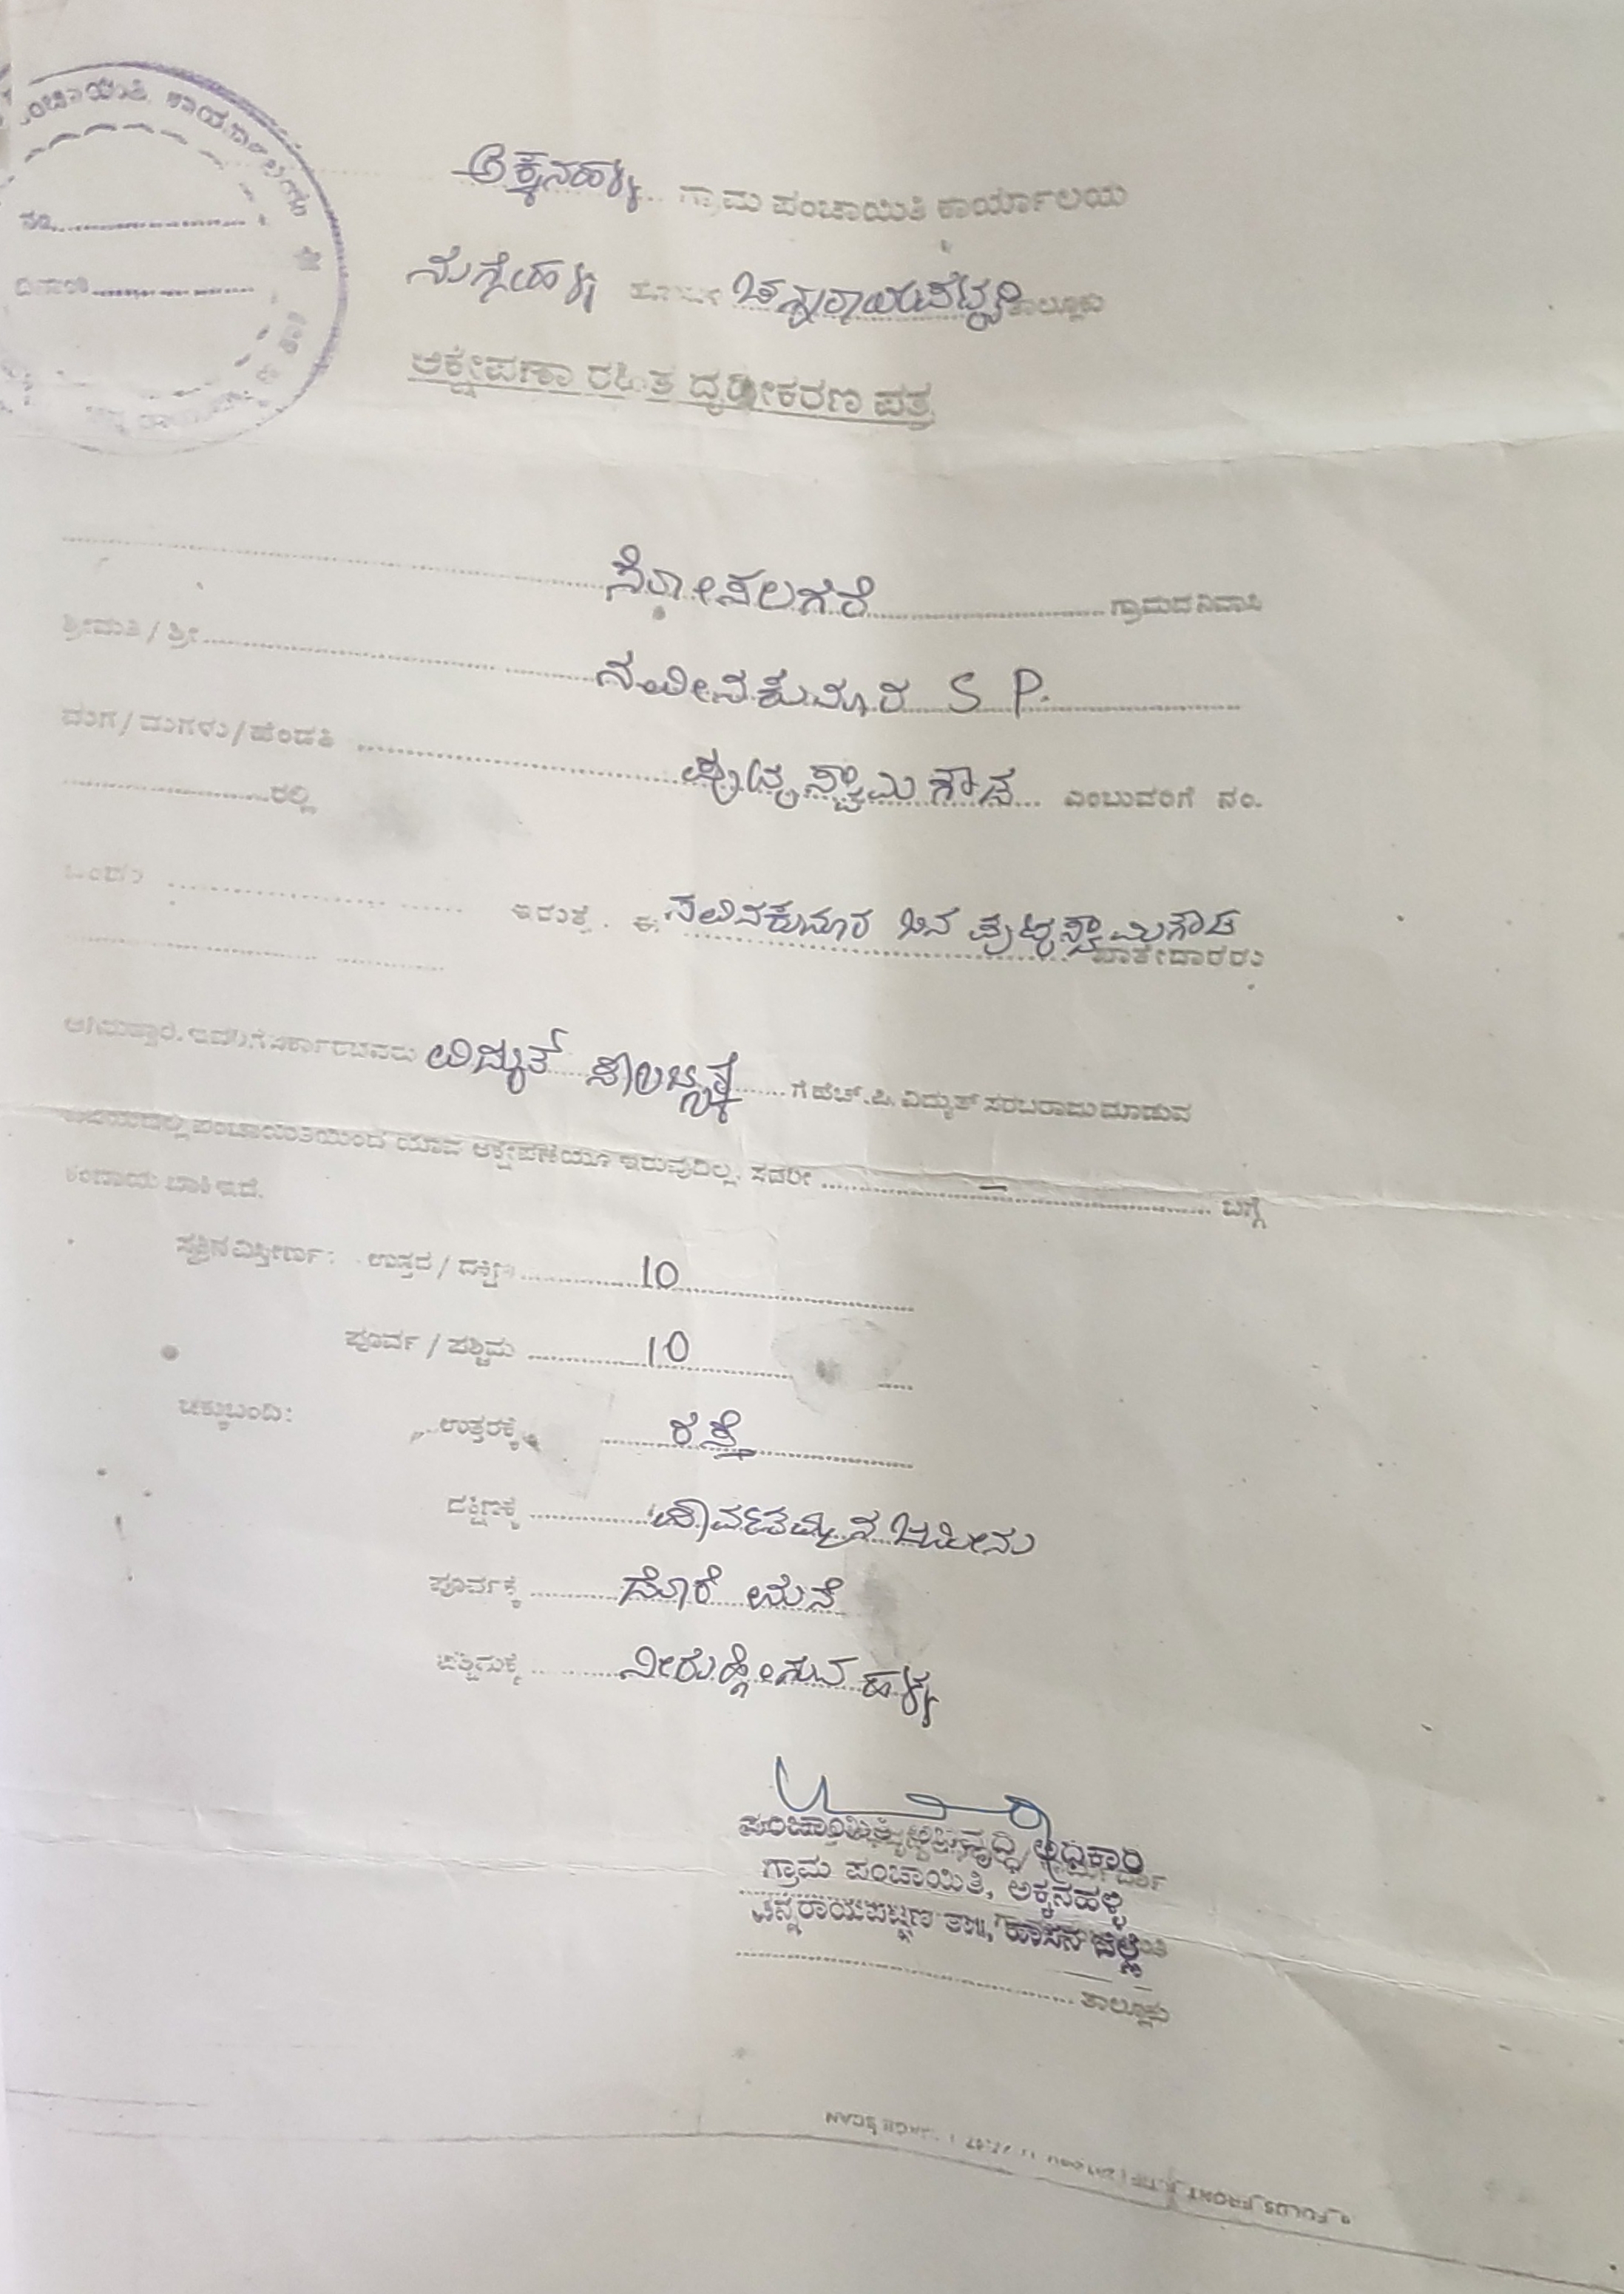 ಪಂಚಾಯಿತಿ ಕಾರ್ಯಾಲಯ
ನಂ..............
ದಿನಾಂಕ..............
ಅಕ್ಕನಹಳ್ಳಿ ಗ್ರಾಮ ಪಂಚಾಯಿತಿ ಕಾರ್ಯಾಲಯ
ನುಗ್ಗೇಹಳ್ಳಿ ಹೋಬಳಿ ಚನ್ನರಾಯಪಟ್ಟಣ ತಾಲ್ಲೂಕು
ಆಕ್ಷೇಪಣಾ ರಹಿತ ದೃಢೀಕರಣ ಪತ್ರ
ಸೋಸಲಗೆರೆ ಗ್ರಾಮದ ನಿವಾಸಿ
ಶ್ರೀಮತಿ / ಶ್ರೀ ನವೀನಕುಮಾರ S P.
ಮಗ / ಮಗಳು / ಹೆಂಡತಿ ಪುಟ್ಟಸ್ವಾಮಿಗೌಡ ಎಂಬುವರಿಗೆ ನಂ.
ರಲ್ಲಿ
ಇರುತ್ತೆ. ಈ ನವಿನಕುಮಾರ ಬಿನ ಪುಟ್ಟಸ್ವಾಮಿಗೌಡ
ಖಾತೇದಾರರು
ವಿದ್ಯುತ್ ಗೆ ಹೆಚ್.ಪಿ. ವಿದ್ಯುತ್ ಸರಬರಾಜು ಮಾಡುವ
ವಿಷಯದಲ್ಲಿ ಪಂಚಾಯಿತಿಯಿಂದ ಯಾವ ಆಕ್ಷೇಪಣೆಯೂ ಇರುವುದಿಲ್ಲ. ಸದರೀ – ಬಗ್ಗೆ
ಕಂದಾಯ ಬಾಕಿ ಇದೆ.
ಸ್ವತ್ತಿನ ವಿಸ್ತೀರ್ಣ : ಉತ್ತರ / ದಕ್ಷಿಣ 10
ಪೂರ್ವ / ಪಶ್ಚಿಮ 10
ಚಕ್ಕುಬಂದಿ : ಉತ್ತರಕ್ಕೆ ರಸ್ತೆ
ದಕ್ಷಿಣಕ್ಕೆ ಪಾರ್ವತಮ್ಮನ ಜಮೀನು
ಪೂರ್ವಕ್ಕೆ ದೊರೆ ಮನೆ
ಪಶ್ಚಿಮಕ್ಕೆ ನೀರುಹೋಗುವ ಹಳ್ಳ
ಪಂಚಾಯಿತಿ ಅಭಿವೃದ್ಧಿ ಅಧಿಕಾರಿ
ಗ್ರಾಮ ಪಂಚಾಯಿತಿ, ಅಕ್ಕನಹಳ್ಳಿ
ಚನ್ನರಾಯಪಟ್ಟಣ ತಾ||, ಹಾಸನ ಜಿಲ್ಲೆ
ತಾಲ್ಲೂಕು